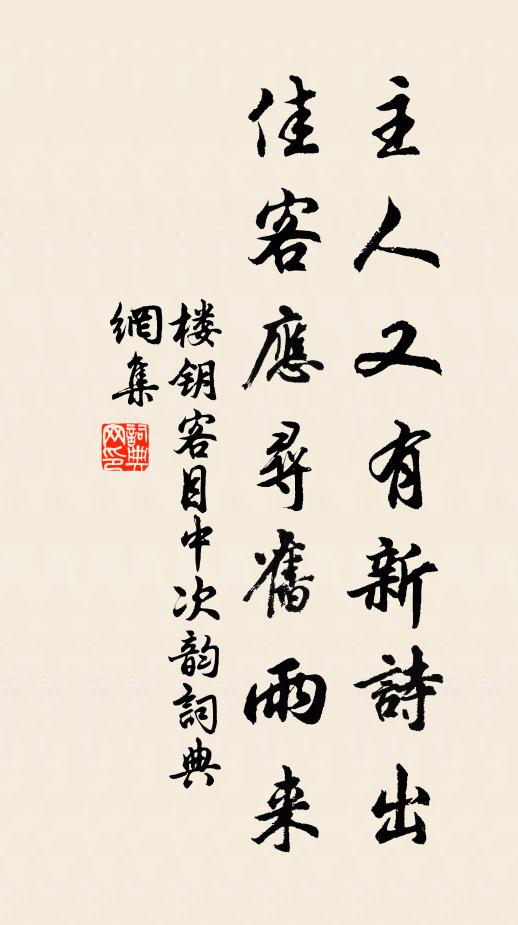 主人又有新詩出
佳客應尋舊雨来
楼钥客目中次韵詞典
網集
詞典
网印